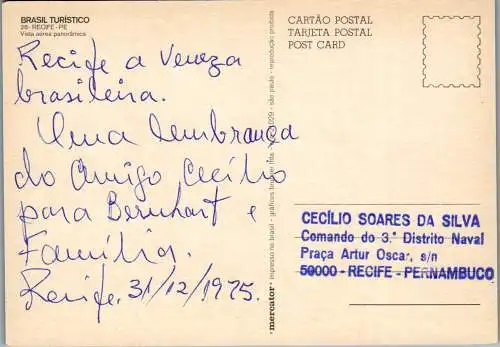 BRASIL TURÍSTICO
28 - RECIFE - PE
Vista aérea panorâmica
Recife a Veneza
brasileira.
Uma lembrança
do Amigo Cecílio
para Bernhart e
Família.
Recife, 31/12/1975.
mercator - impresso no brasil - gráficos brunner ltda - são paulo - reprodução proibida
CARTÃO POSTAL
TARJETA POSTAL
POST CARD
CECÍLIO SOARES DA SILVA
Comando do 3.° Distrito Naval
Praça Artur Oscar, s/n
50000 - RECIFE - PERNAMBUCO